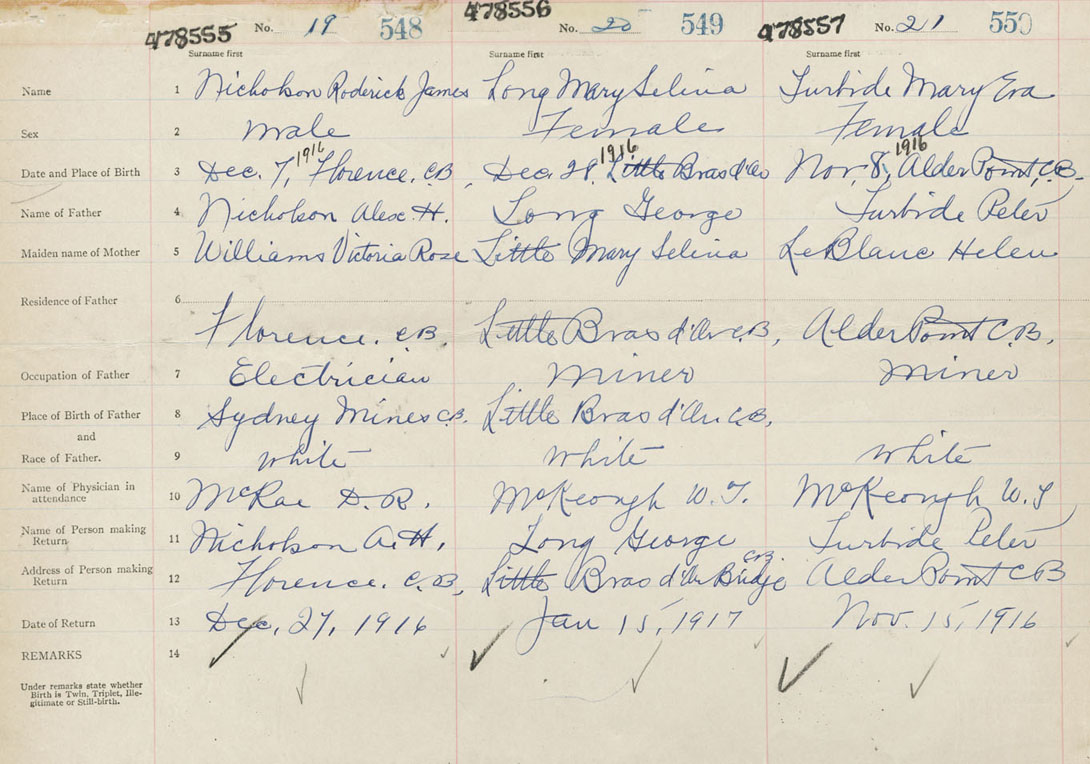 478555 No. 19 548 478556 No. 20 549 478557 No. 21 550
Surname first Surname first Surname first
Name 1 Nicholson Roderick James Long Mary Selina Turbide Mary Eva
Sex 2 Male Female Female
1916 1916 1916
Date and Place of Birth 3 Dec. 7, Florence, C.B, Dec. 28, Little Bras d'Or Nov. 8, Alder Point, C.B.
Name of Father 4 Nicholson Alex. H. Long George Turbide Peter
Maiden name of Mother 5 Williams Victoria Rose Little Mary Selina LeBlanc Helen
Residence of Father 6 Florence. C.B, Little Bras d'Or C.B, Alder Point C.B,
Occupation of Father 7 Electrician Miner Miner
Place of Birth of Father 8 Sydney Mines C.B. Little Bras d'Or. C.B,
and
Race of Father. 9 White White White
Name of Physician in
attendance 10 McRae D. R. McKeough W. T. McKeough W. T
Name of Person making
Return 11 Nicholson A. H, Long George Turbide Peter
Address of Person making
Return 12 Florence. C. B, Little Bras d'Or Bridge C.B. Alder Point C B
Date of Return 13 Dec, 27, 1916 Jan 15, 1917 Nov. 15, 1916
REMARKS 14
Under remarks state whether
Birth is Twin, Triplet, Ille-
gitimate or Still-birth.